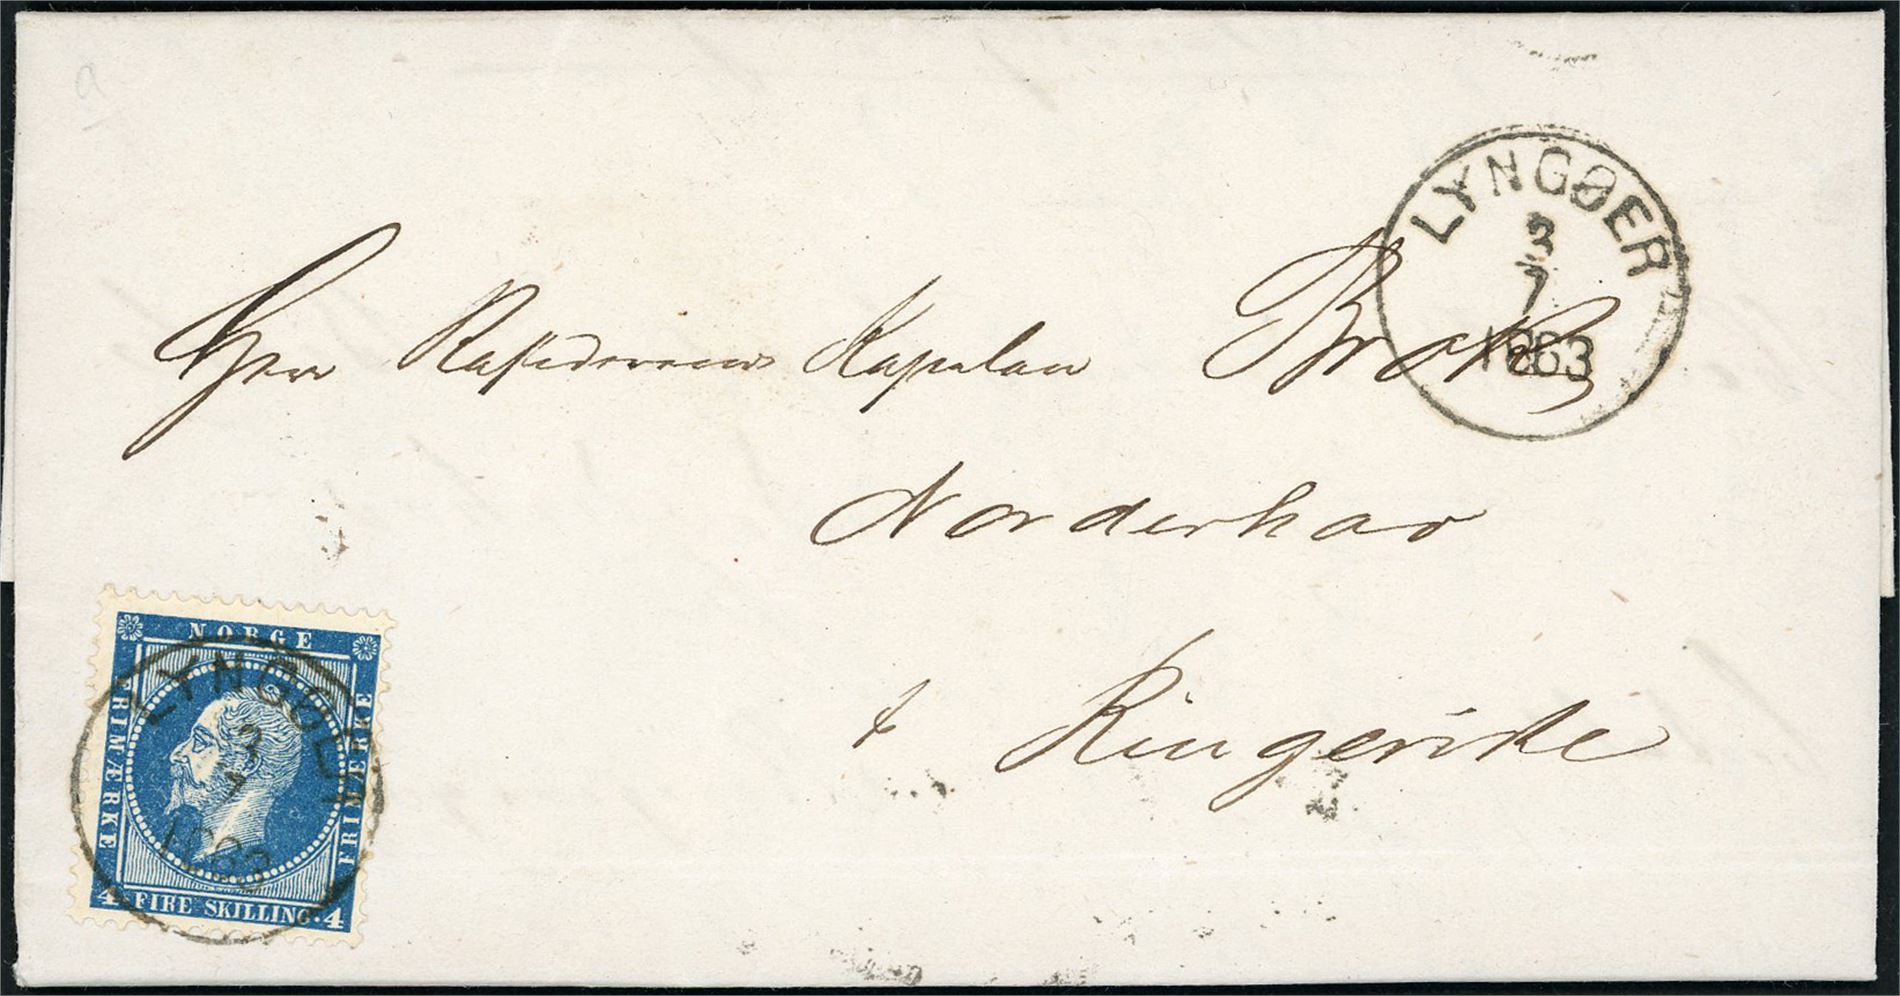 LYNGØER
3
7
1863
Herr Residerende Kapelan
Norderhov
i Ringerike
NORGE
FRIMÆRKE
FRIMÆRKE
LYNGØER
3
7
1863
4 FIRE SKILLING. 4